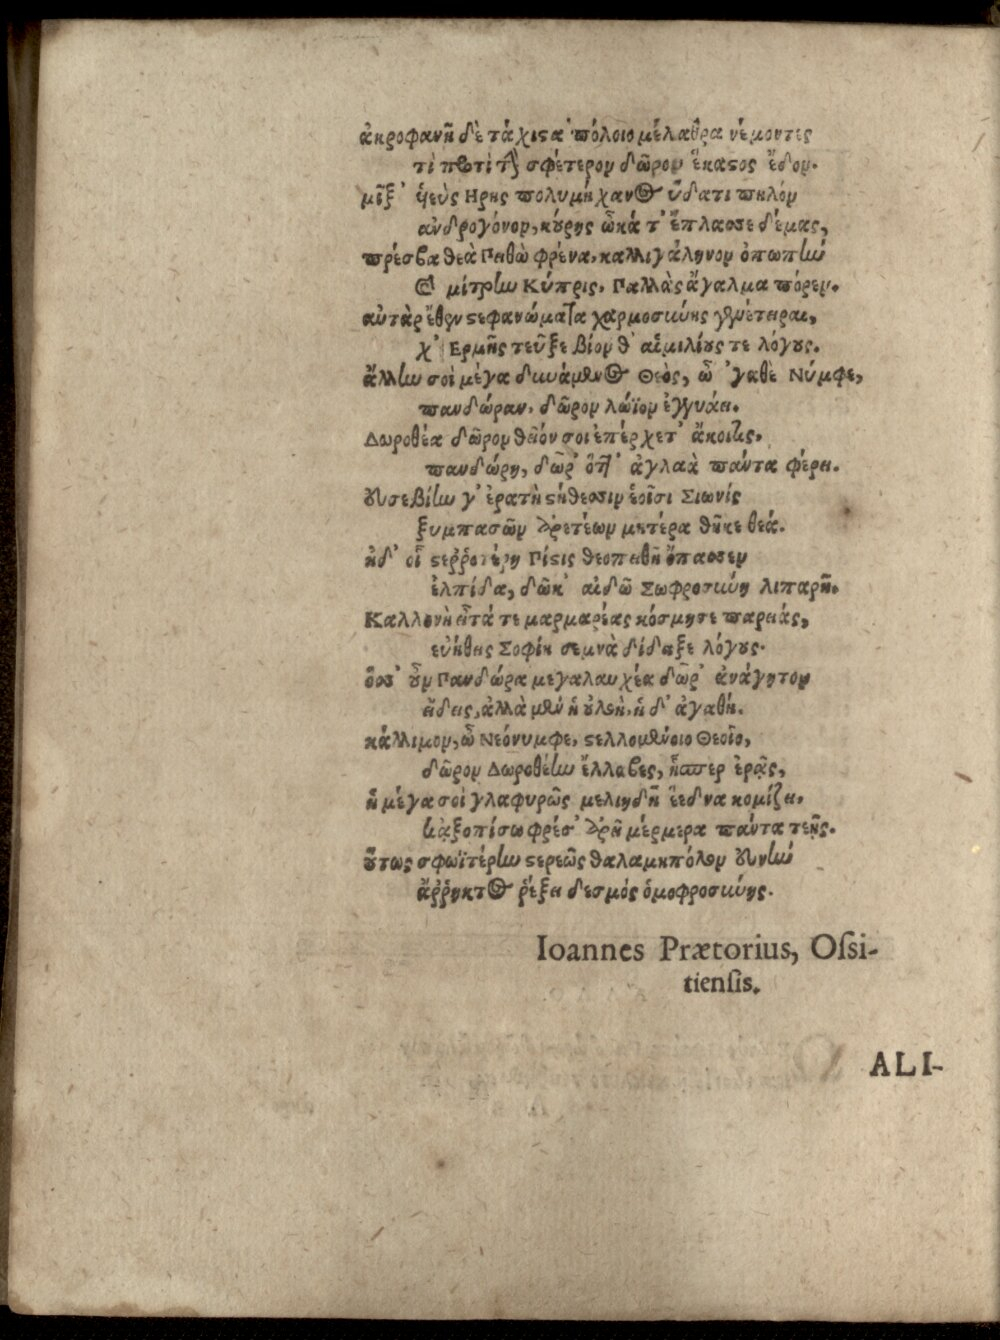 ἀκροφανῆ δὲ τάχιστα πόλοιο μέλαθρα νέμοντες
σφέτερον δῶρον ἕκαστος ἔδον.
μῖξ' Ηρης πολυμήχανος ὕδατι πηλὸν
ἀνδρογόνον, κύρης ὠκά τ' ἔπλασσε δέμας,
πρέσβα θεὰ Πειθὼ φρένα, καλλιγάληνον ὀπωπὴν
καὶ μίτρην Κύπρις, Παλλὰς ἄγαλμα πόρεν.
αὐτὰρ στεφανώματα χαρμοσύνης
χ' Ερμῆς τεῦξε βίον θ' αἱμιλίους τε λόγους.
ἄλλην σοὶ μέγα δυνάμενος Θεὸς, ὦ 'γαθὲ Νύμφε,
πανδώραν, δῶρον λώϊον ἐγγυάει.
Δωροθέα δῶρον θεῖόν σοι ἐπέρχετ' ἄκοιτις,
πανδώρη, δῶρ' ὅτι' ἀγλαὰ πάντα φέρει.
ουσεβίην γ' ἐρατὴ στήθεσσιν ἑοῖσι Σιωνίς
ξυμπασῶν ἀρετέων μητέρα θῆκε θεά.
ἠδ' οἷ στερροτέρη Πίστις θεοπειθῆ ὄπασσεν
ἐλπίδα, δῶκ' αἰδῶ Σωφροσύνη λιπαρή.
Καλλονὴ εἶτά τε μαρμαρέας κόσμησε παρειάς,
εὐήθης Σοφίη σεμνὰ δίδαξε λόγους.
ὅσσ' οὖν Πανδώρα μεγαλαυχέα δῶρ' ἀνάγητον
εἴδεις, ἀλλὰ μὲν ἡ οὐλοὴ, ἡ δ' ἀγαθή.
κάλλιμον, ὦ Νεόνυμφε, στελλομένοιο Θεοῖο,
δῶρον Δωροθέην ἔλλαβες, ἧσπερ ἐρᾷς,
ἡ μέγα σοὶ γλαφυρῶς μελιηδῆ ἔεδνα κομίζει,
φρέσ' μέρμερα πάντα τεῇς.
οὕτως σφωϊτέρην στερεῶς θαλαμηπόλον ουνὴν
ἄρρηκτος ῥέξει δεσμὸς ὁμοφροσύνης.
Ioannes Prætorius, Oſsi-
tienſis.
ALI-